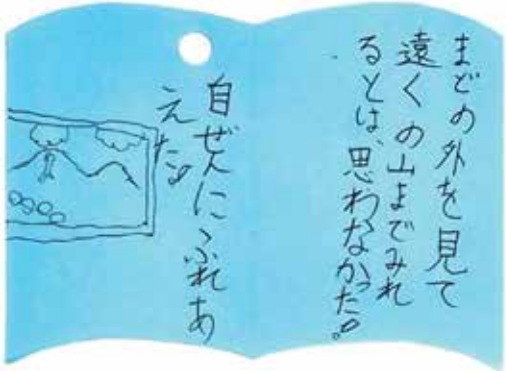 まどの外を見て
遠くの山までみれ
るとは、思わなかった。
自ぜんにふれあ
えた。